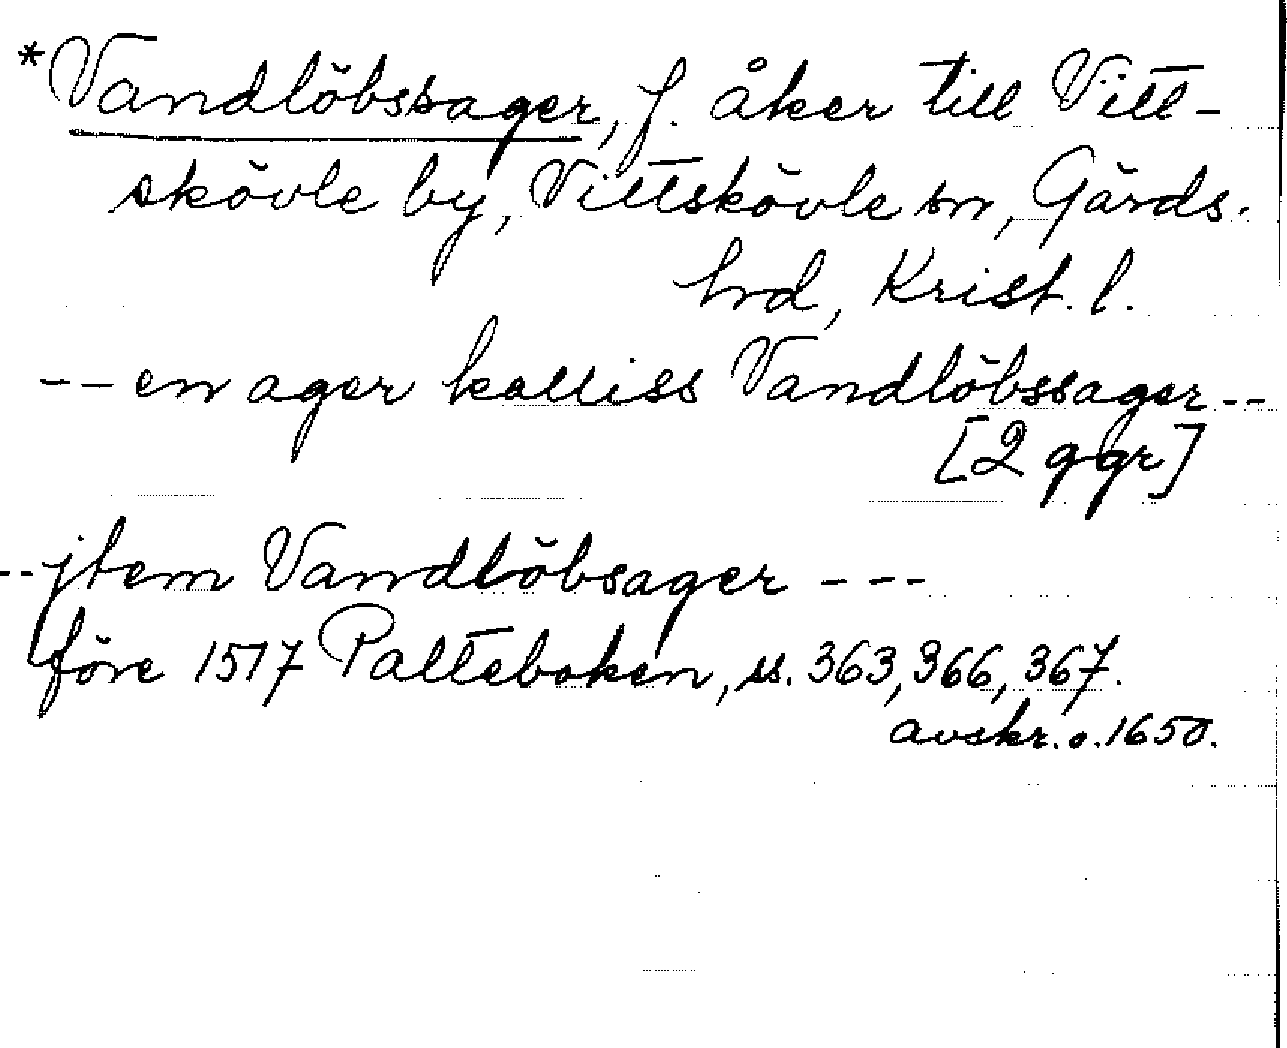 *Vandlöbssager, f. åker till Vitt-
skövle by, Vittskövle sn, Gärds.
hrd, Krist. l.
-- en ager kalliss Vandlöbssager --
[2 ggr]
-- jtem Vandlöbsager ---
före 1517 Palteboken, ss. 363, 366, 367.
avskr. o. 1650.